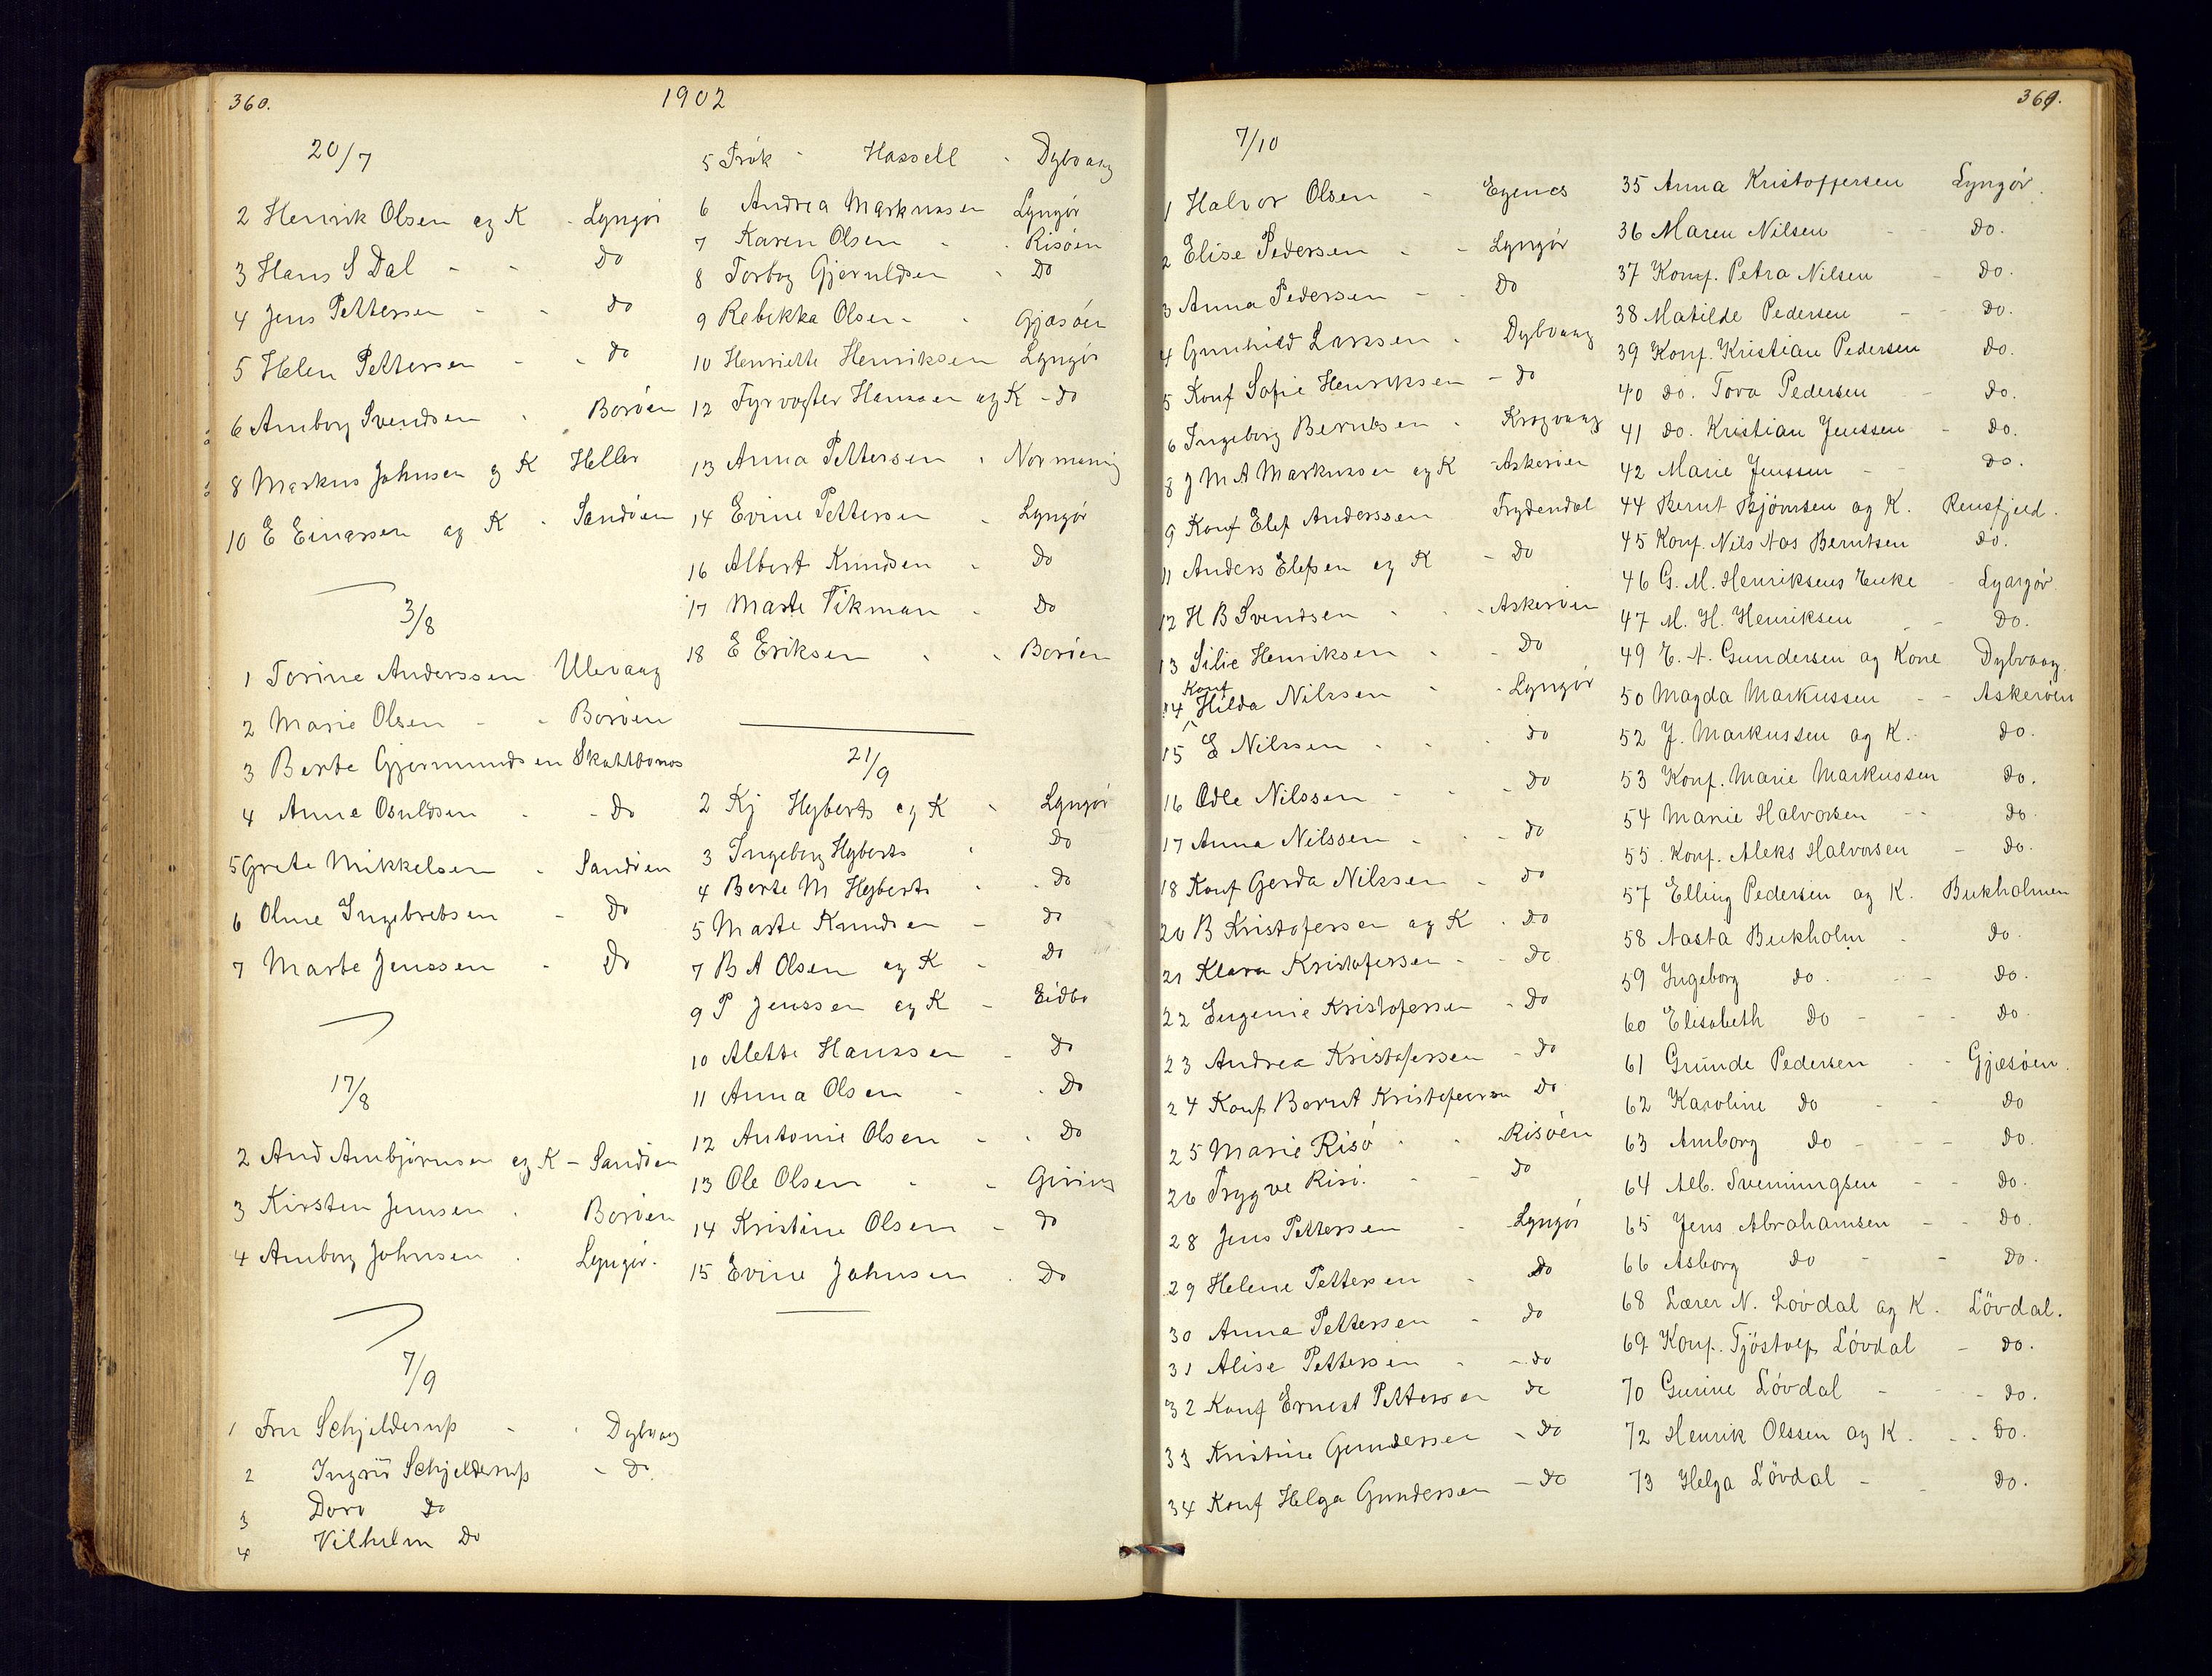 360.
1902
20/7
2 Henrik Olsen og K - Lyngör
3 Hans S Dal - - Do
4 Jens Pettersen - - do
5 Helen Pettersen - - do
6 Amborg Svendsen - Boröen
8 Markus Johnsen og K Heller
10 E Einarsen og K - Sandöen
3/8
1 Torine Anderssen Ulevaag
2 Marie Olsen - - Boröen
3 Berte Gjermundsen
4 Anne Osuldsen - - Do
5 Grete Mikkelsen - Sandöen
6 Oline Ingebretsen - Do
7 Marte Jenssen - Do
17/8
2 And Ambjörnsen og K - Sandöen
3 Kirsten Jensen - Boröen
4 Amborg Johnsen - Lyngör.
7/9
1 Fru Schjelderup - - Dybvaag
2 Ingrid Schjelderup - Do
3 Do
4 Vilhelm Do
5 Frök - Hassell - Dybvaag
6 Andrea Markussen Lyngör
7 Karen Olsen - - Risöen
8 Torbog Gjeruldsen - Do
9 Rebekka Olsen - - Gjæsöen
10 Henriette Henriksen Lyngör
12 Fyrvogter Hansen og K - do
13 Anna Pettersen -
14 Evine Pettersen - Lyngör
16 Albert Knudsen - Do
17 Marte Vikman - Do
18 E Eriksen - - Boröen
21/9
2 Kj Hyberts og K - Lyngör
3 Ingeborg Hyberts - Do
4 Berte M Hyberts - - do
5 Marte Knudsen - do
7 B A Olsen og K - Do
9 P Jenssen og K - Eidbo
10 Alette Hanssen - Do
11 Anna Olsen - - Do
12 Antonie Olsen - - Do
13 Ole Olsen - -
14 Kristine Olsen - do
15 Evine Johnsen - Do
361.
7/10
1 Halvor Olsen - Egenes
2 Elise Pedersen - - Lyngör
3 Anna Pedersen - - Do
4 Gunhild Larssen - Dybvaag
5 Konf Sofie Henriksen - do
6 Ingeborg Berntsen - Krogvaag
8 J M A Markussen og K - Askeröen
9 Konf Elef Anderssen Frydendal
11 Anders Elefsen og K - Do
12 H B Svendsen - - Askeröen
13 Silie Henriksen - - Do
14 Konf Hilda Nilssen - - Lyngör
15 E Nilssen - - - do
16 Odle Nilssen - - - do
17 Anna Nilssen - - - do
18 Konf Gerda Nilssen - do
20 B Kristofersen og K - do
21 Klara Kristofersen - - do
22 Eugenie Kristofersen - Do
23 Andrea Kristofersen - do
24 Konf Bernt Kristofersen Do
25 Marie Risö - - Risöen
26 Trygve Risö. - - do
28 Jens Pettersen - - Lyngör
29 Helene Pettersen - Do
30 Anna Pettersen - do
31 Alise Pettersen - - do
32 Konf Ernest Pettersen do
33 Kristine Gundersen - Do
34 Konf Helga Gundersen - Do
35 Anna Kristoffersen Lyngör.
36 Maren Nilsen - - do.
37 Konf. Petra Nilsen - do.
38 Matilde Pedersen - - do.
39 Konf. Kristian Pedersen do.
40 do. Tora Pedersen - do.
41 do. Kristian Jenssen - do.
42 Marie Jenssen - - do.
44 Bernt Bjørnsen og K. Rensfjeld.
45 Konf. Nils Aas Berntsen do.
46 G. M. Henriksens Enke - Lyngör
47 M. H. Henriksen - - do.
49 E. A. Gundersen og Kone Dybvaag.
50 Magda Markussen - - Askeröen
52 J. Markussen og K. - do.
53 Konf. Marie Markussen do.
54 Marie Halvorsen - - do.
55. Konf. Aleks Halvorsen - do.
57 Elling Pedersen og K. Bukholmen
58 Aasta Bukholm - do.
59 Ingeborg do. - - do.
60 Elisabeth do - - - do.
61 Grunde Pedersen - - Gjæsöen.
62 Karoline do - - do
63 Amborg do - - - do.
64 Alb. Svenningsen - - do.
65 Jens Abrahamsen - - do.
66 Asborg do - - do.
68 Lærer N. Lövdal og K. Lövdal.
69 Konf. Tjöstolf Lövdal - do.
70 Gurine Lövdal - - - do.
72 Henrik Olssen og K. - - do.
73 Helga Lövdal - - do.